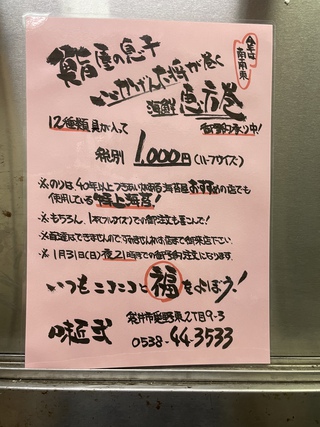 今年は
南南東
鮨屋の息子
いいかげんな大将が巻く
海鮮 恵方巻
12種類具が入って
御予約承り中!
税別 1,000円(ハーフサイズ)
※のりは40年以上つきあいのある海苔屋おすすめの店でも
使用している特上海苔!
※もちろん、1本(フルサイズ)での御注文も喜こんで!
※配達はできませんのですみませんがお店まで御来店下さい。
※1月31日(日)夜21時までの御予約注文になります。
いつもニコニコと福をよぼう!
袋井市 2丁目9-3
0538-44-3533